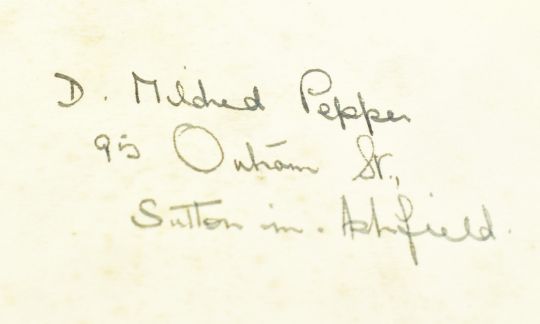 D. Mildred Pepper
95 Outram St.,
Sutton-in-Ashfield.